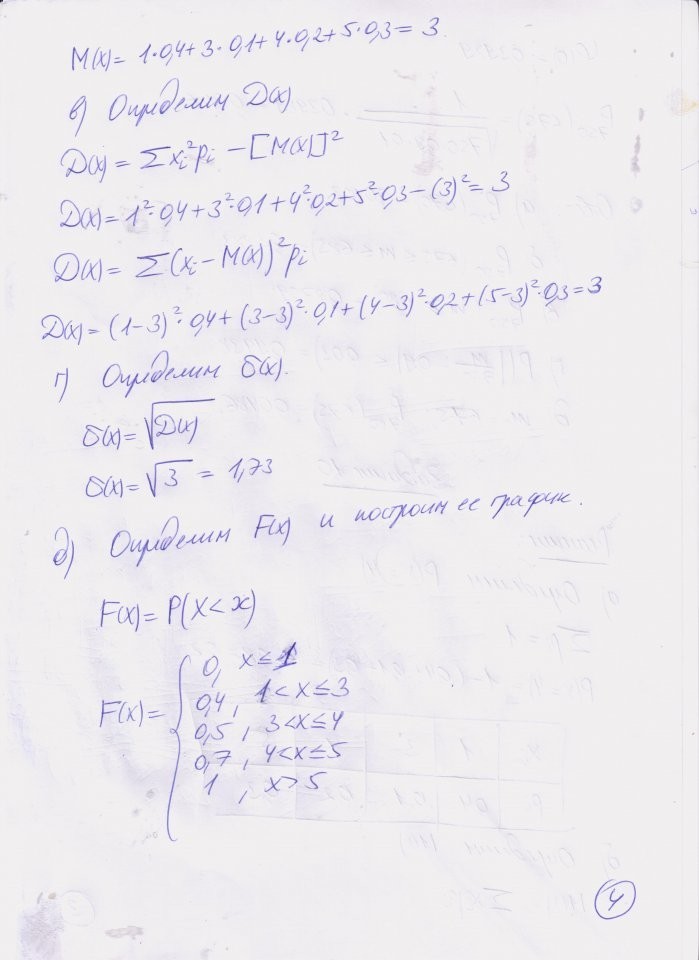 M(x) = 1·0,4+3·0,1+4·0,2+5·0,3 = 3
в) Определим D(x)
D(x) = Σxᵢ²pᵢ – [M(x)]²
D(x) = 1²·0,4+3²·0,1+4²·0,2+5²·0,3–(3)² = 3
D(x) = Σ(xᵢ – M(x))²pᵢ
D(x) = (1–3)²·0,4+(3–3)²·0,1+(4–3)²·0,2+(5–3)²·0,3=3
г) Определим σ(x).
σ(x) = √D(x)
σ(x) = √3 = 1,73
д) Определим F(x) и построим ее график.
F(x) = P(X < x)
F(x) = {
0, x ≤ 1
0,4, 1 < x ≤ 3
0,5, 3 < x ≤ 4
0,7, 4 < x ≤ 5
1, x > 5
4